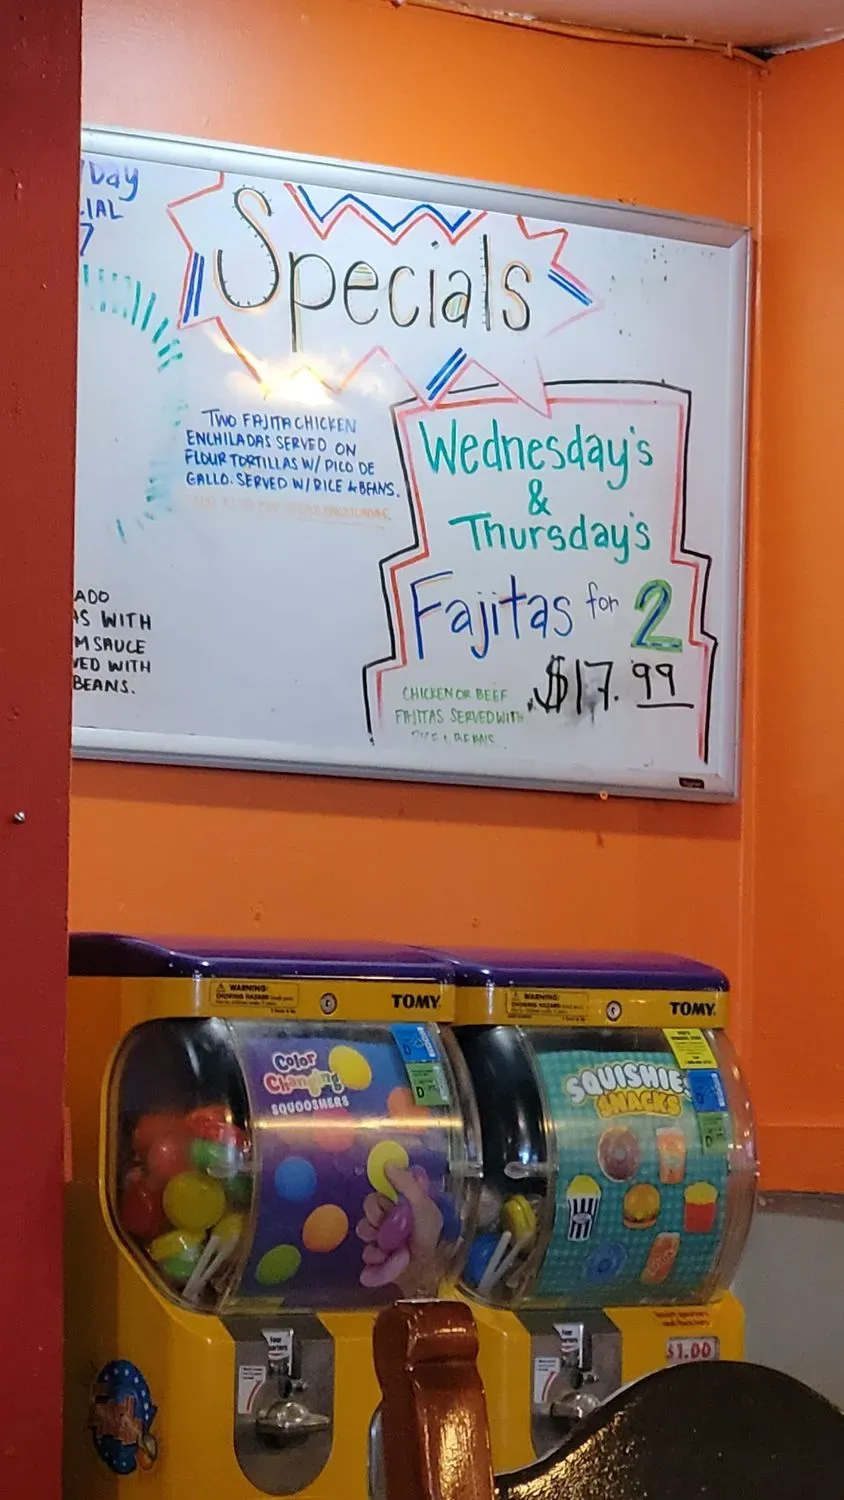 Day
IAL
7
Specials
TWO FAJITA CHICKEN
ENCHILADAS SERVED ON
FLOUR TORTILLAS W/ PICO DE
GALLO. SERVED W/ RICE & BEANS.
ADO
AS WITH
M SAUCE
VED WITH
BEANS.
Wednesday's
&
Thursday's
Fajitas for 2
$17.99
CHICKEN OR BEEF
FAJITAS SERVED WITH
RICE & BEANS.
WARNING:
CHOKING HAZARD
TOMY
Color
Changing
SQUOOSHERS
D
WARNING:
CHOKING HAZARD
TOMY
SQUISHIE
SNACKS
D
$1.00